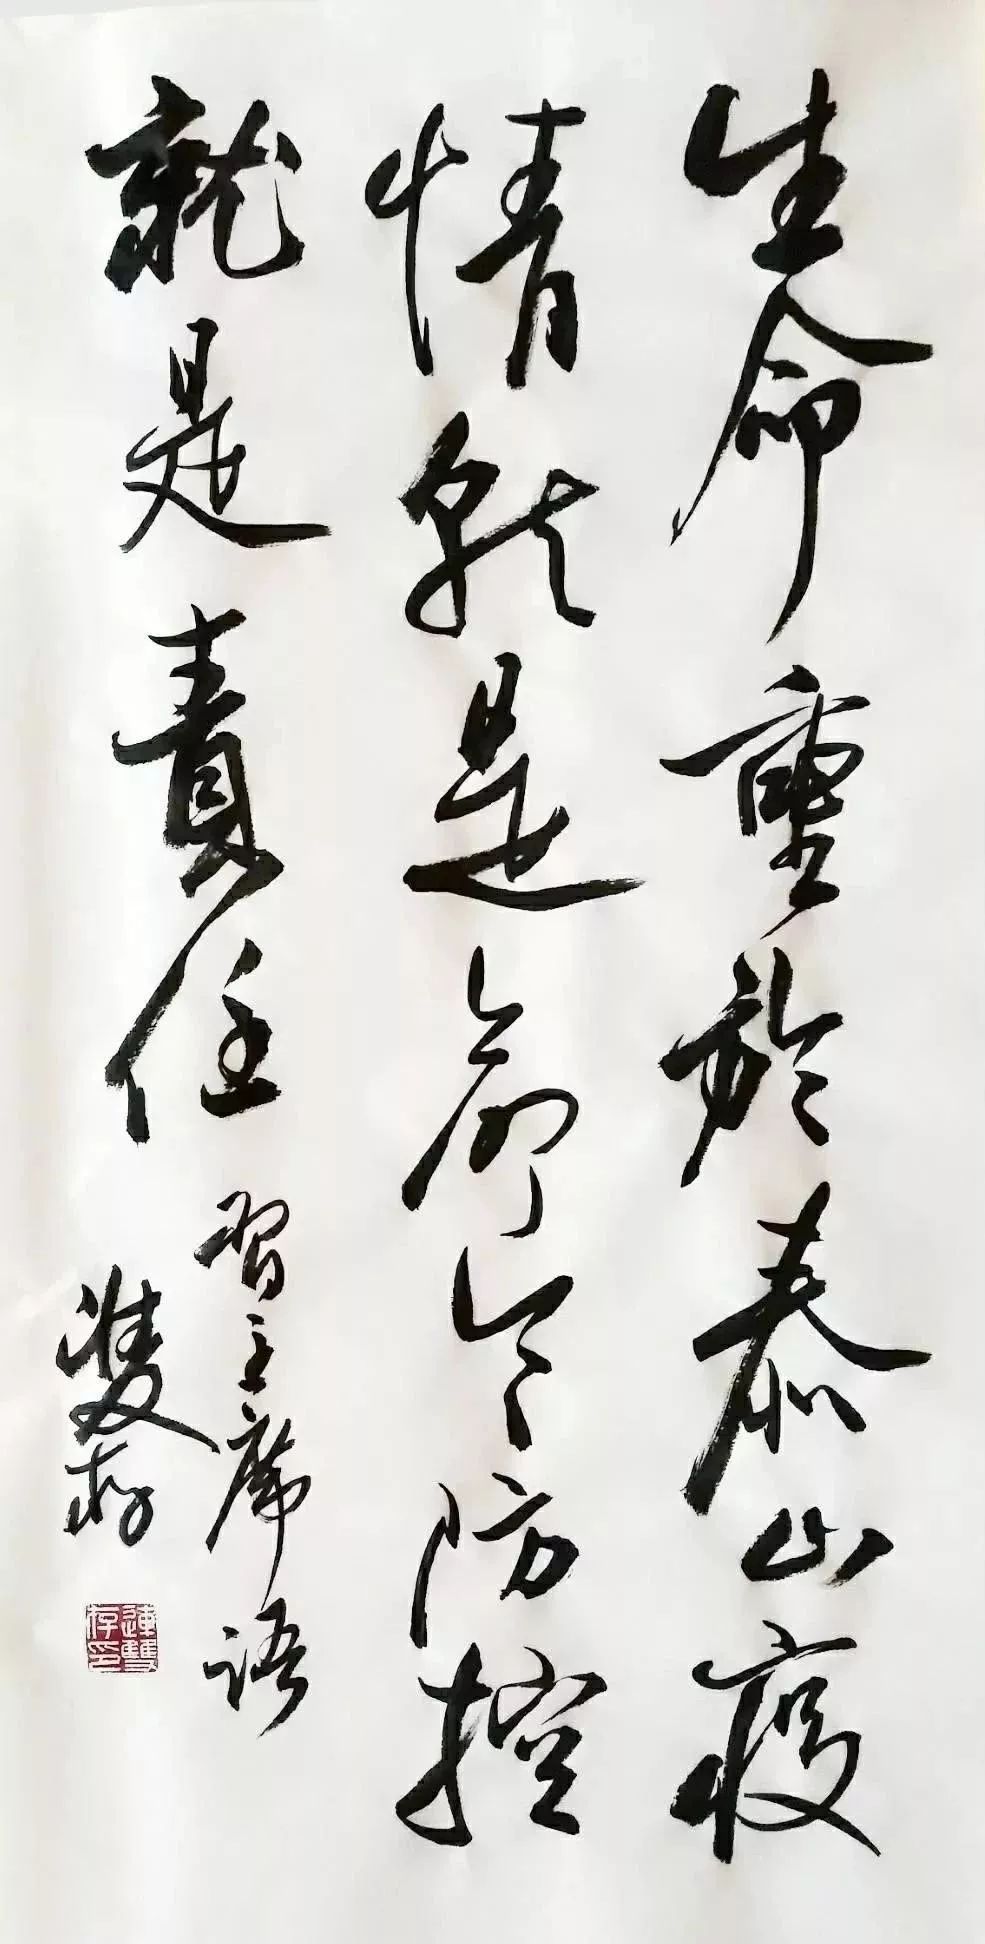 生命重於泰山疫
情就是命令防控
就是責任
習主席語
雙存
連雙存印